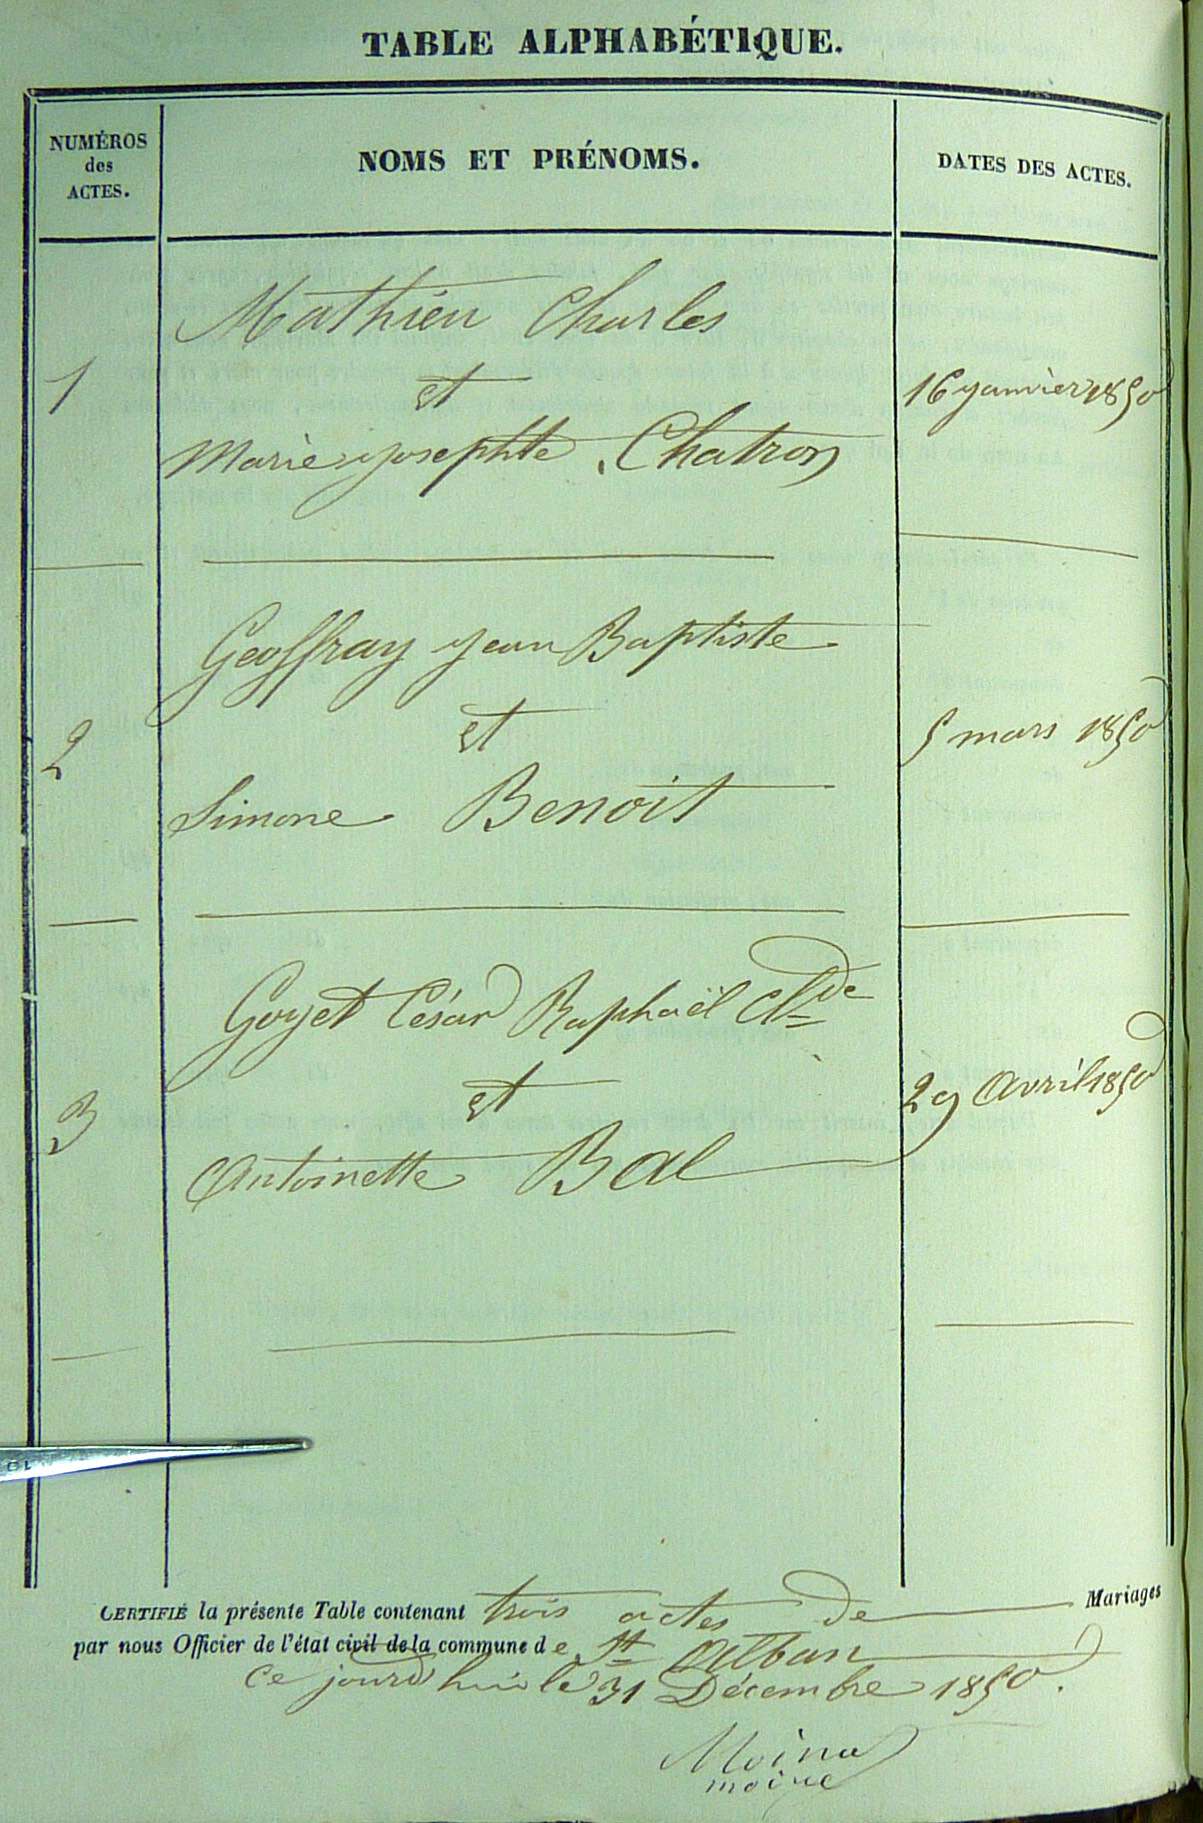 TABLE ALPHABÉTIQUE.
NUMÉROS
des
ACTES.
NOMS ET PRÉNOMS.
DATES DES ACTES.
Mathieu Charles
1
et
16 janvier 1850
Marie josephte Chatron
Geoffray jean Baptiste
2
et
5 mars 1850
Simone Benoit
Goyet César Raphaël Cl^de
3
et
29 Avril 1850
Antoinette Bal
CERTIFIÉ la présente Table contenant trois actes de Mariages
par nous Officier de l'état civil de la commune de St Alban
Ce jourd'hui le 31 Décembre 1850.
moine